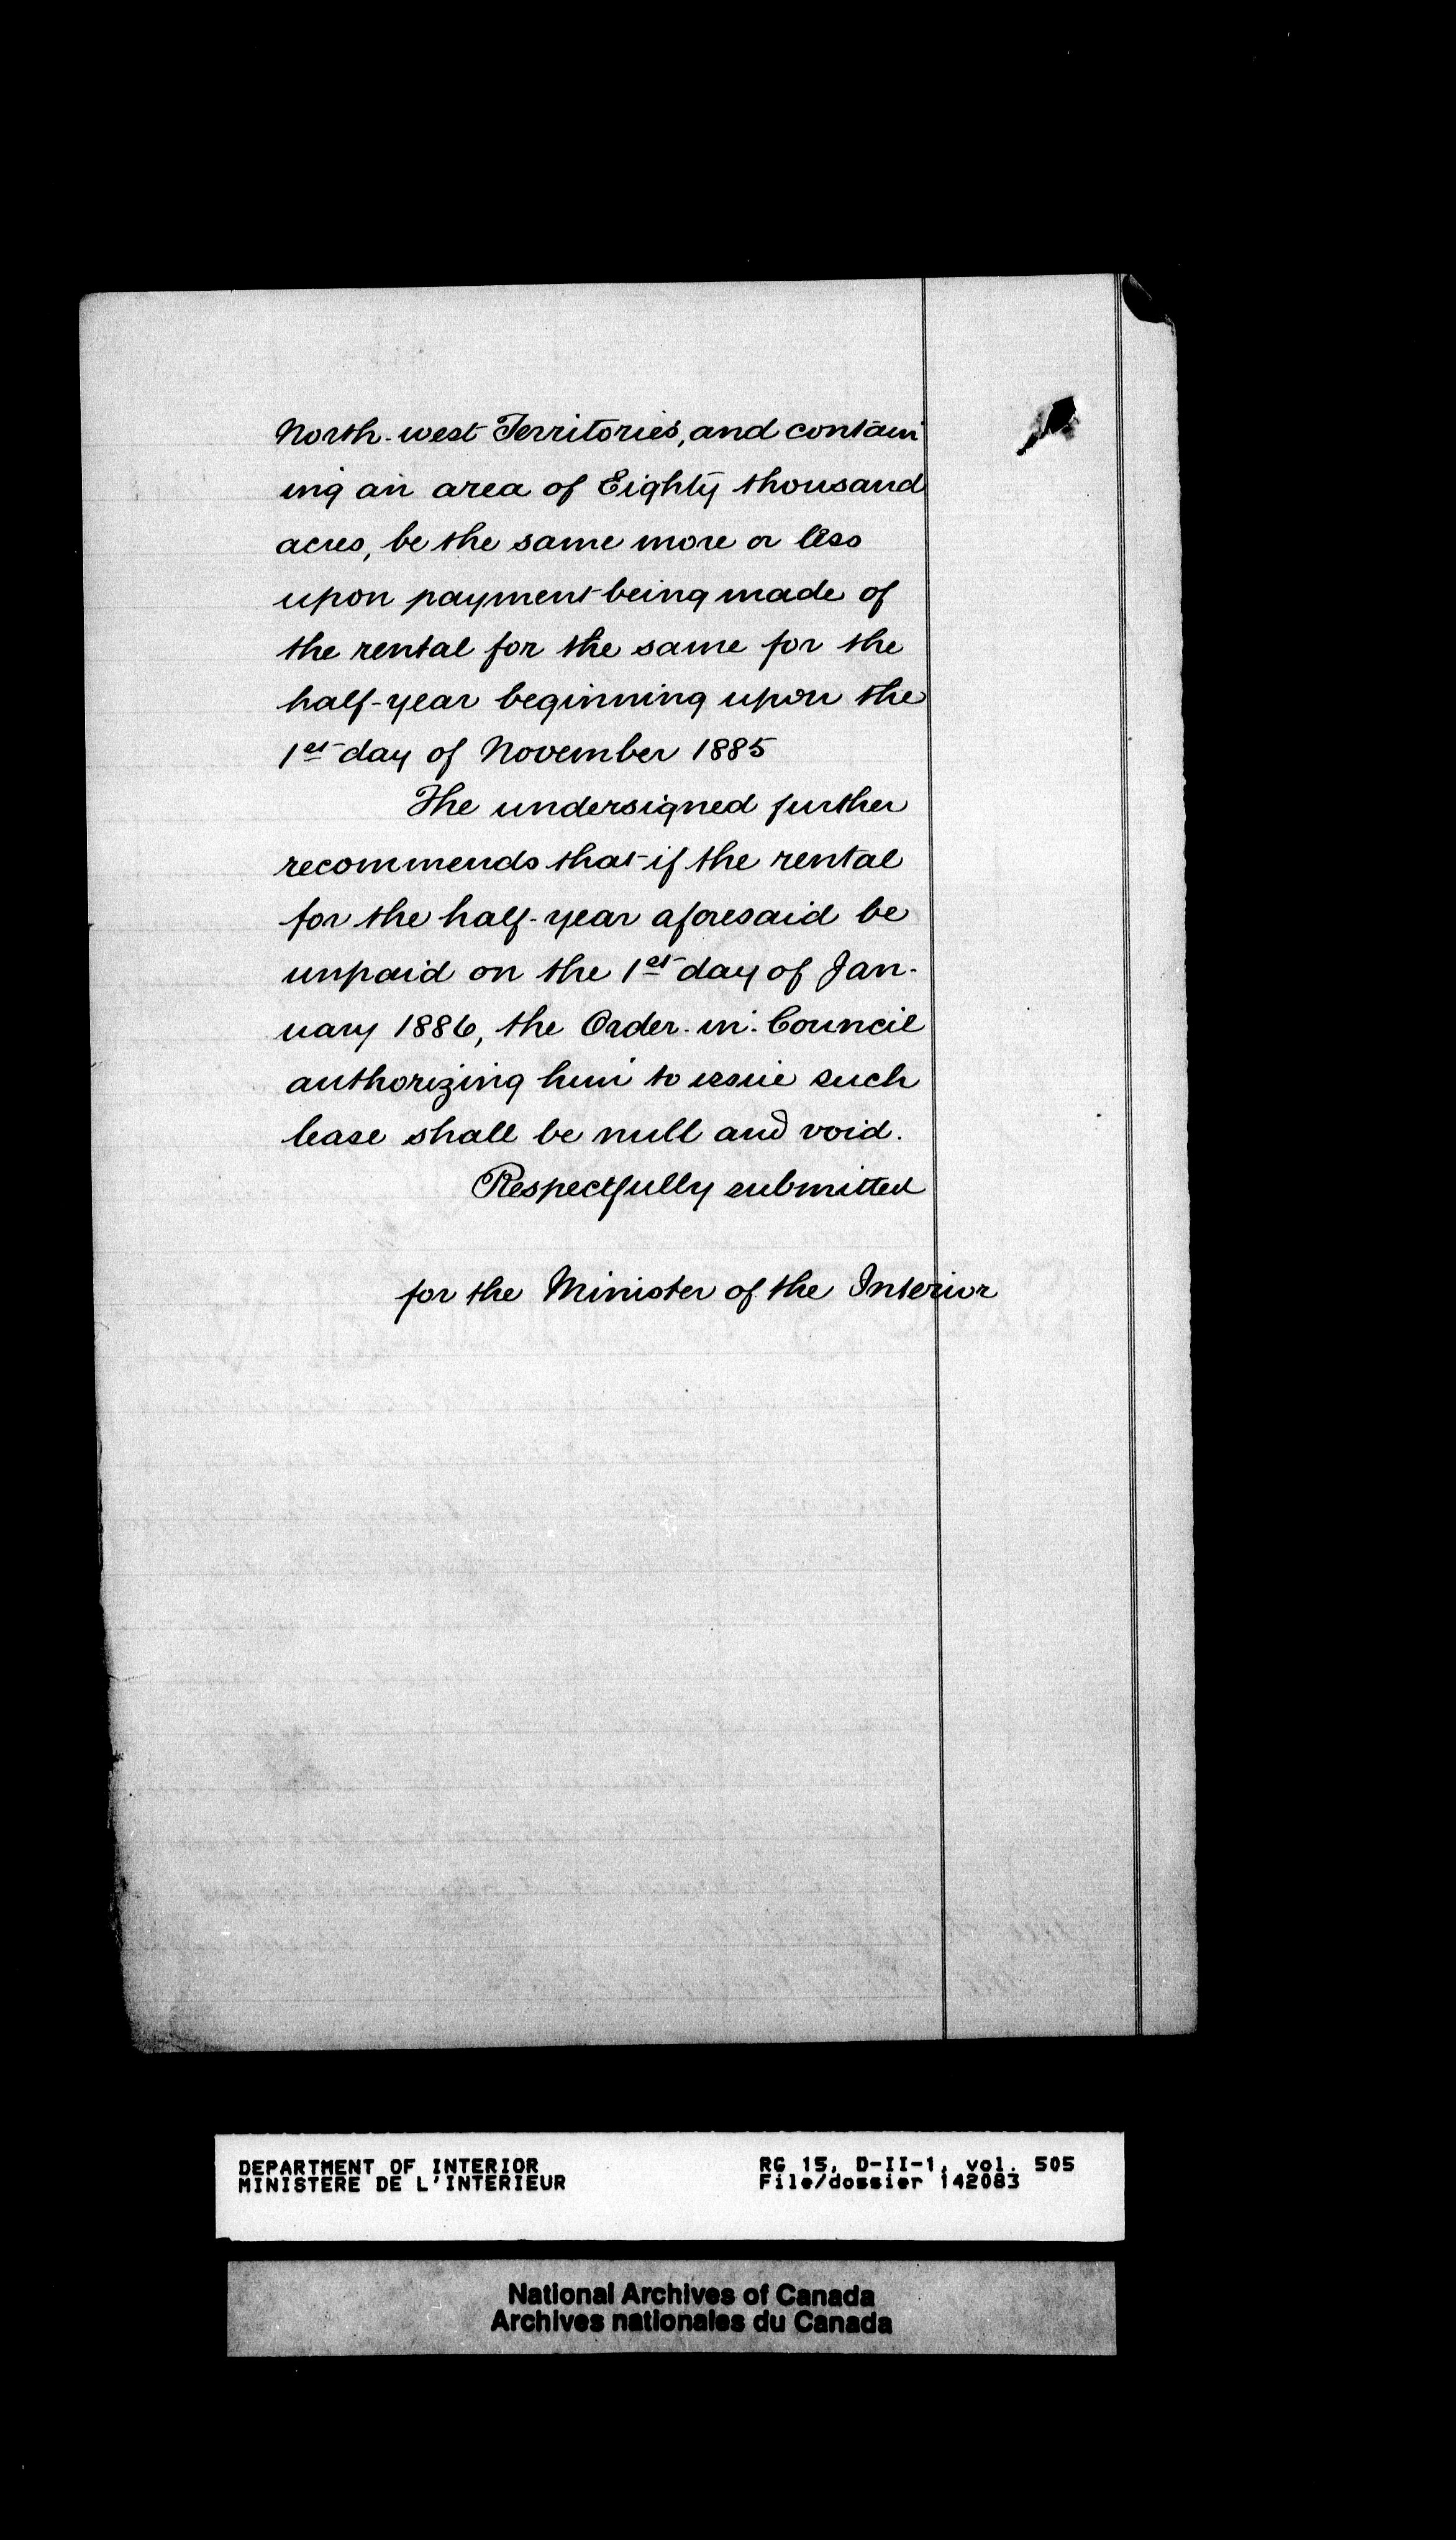 North-west Territories, and contain
ing an area of Eighty thousand
acres, be the same more or less
upon payment being made of
the rental for the same for the
half-year beginning upon the
1st day of November 1885
The undersigned further
recommends that if the rental
for the half-year aforesaid be
unpaid on the 1st day of Jan-
uary 1886, the Order-in-Council
authorizing him to issue such
lease shall be null and void.
Respectfully submitted
for the Minister of the Interior
DEPARTMENT OF INTERIOR
MINISTERE DE L'INTERIEUR
RG 15, D-II-1, vol. 505
File/dossier 142083
National Archives of Canada
Archives nationales du Canada